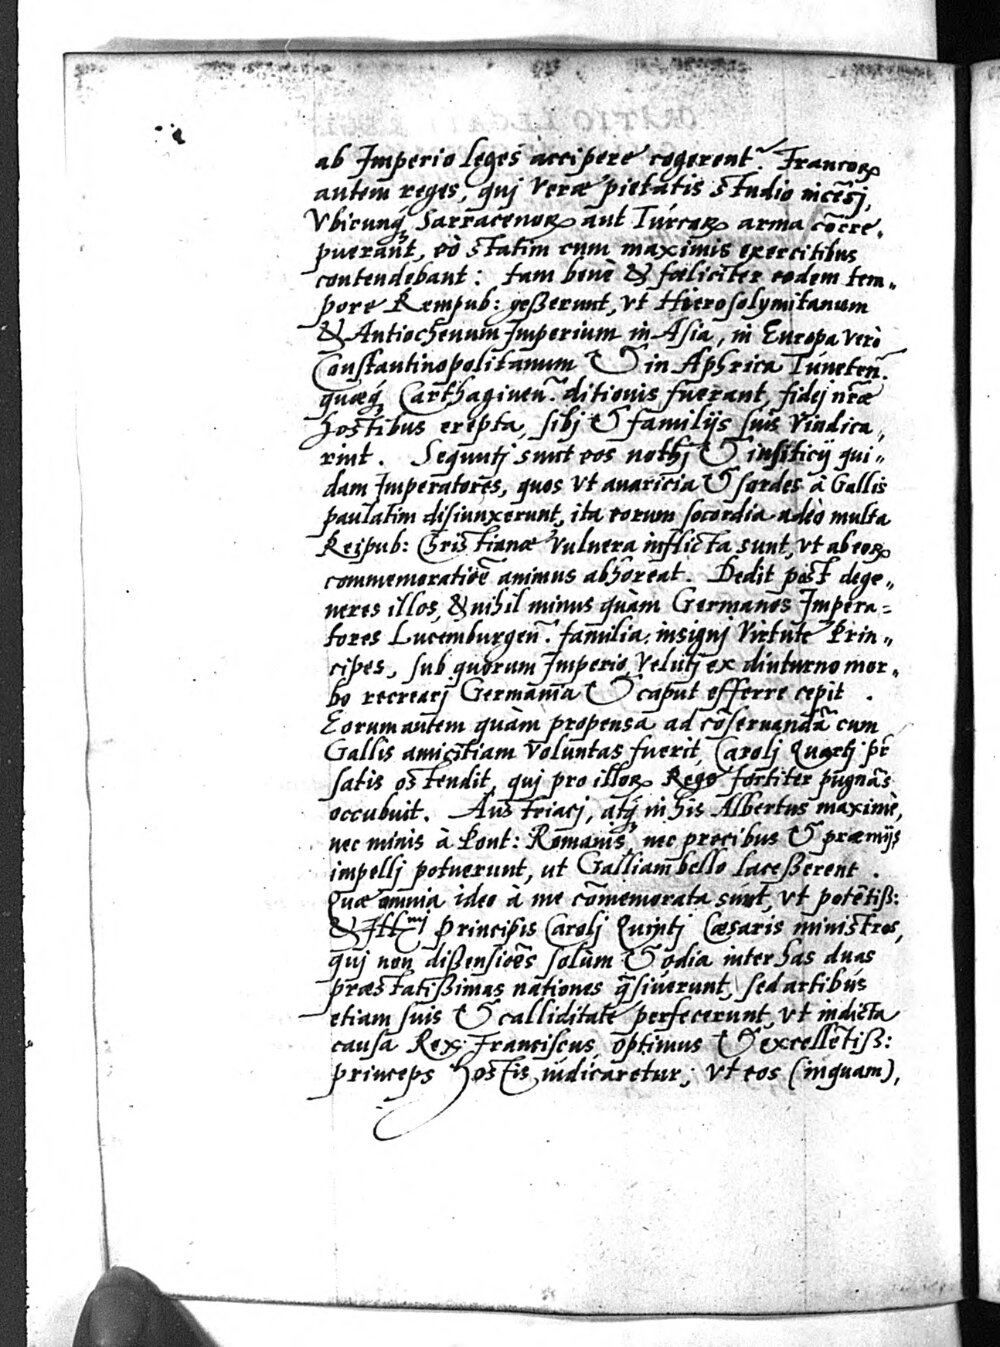 ab Imperio leges accipere cogerent. Francoꝝ
autem reges, quj veræ pietatis studio incẽsj,
Vbicunq̃ Sarracenoꝝ aut Turcaꝝ arma cõcre-
puerãt, eò statim cum maximis exercitibus
contendebant: tam benè & fœliciter eodem tem-
pore Rempub: geßerunt, vt Hierosolymitanum
& Antiochenum Imperium in Asia, in Europa verò
Constantinopolitanum & in Aphrica Tuneten̄.
quæq́ Carthaginen̄. ditionis fuerant, fidej nr̃æ
hostibus erepta, sibj & familijs suis vindica,
rint. Sequutj sunt eos nothj & insiticij qui-
dam Imperatores, quos vt auaricia & sordes à Gallis
paulatim disiunxerunt, ita eorum socordia adeò multa
Reipub: Christianæ vulnera inflicta sunt, vt ab eoꝝ
commemoratiõe animus abhoreat. Dedit post dege-
neres illos, & nihil minus quàm Germanos Impera-
tores Lucemburgen̄. familia, insignj virtute Prin-
cipes, sub quorum Imperio, velutj ex diuturno mor-
bo recrearj Germania & caput efferre cepit.
Eorum autem quàm propensa ad cõseruandã cum
Gallis amicitiam voluntas fuerit, Carolj Quartj pr̃
satis ostendit, quj pro illoꝝ Rege fortiter pugnãs
occubuit. Austriacj, atq́ in his Albertus maximè,
nec minis à Pont: Romanis, nec precibus & præmijs
impellj potuerunt, ut Galliam bello laceßerent.
Quæ omnia ideo à me cõmemorata sunt, vt potẽtiß:
& Illmj Principis Carolj Quintj Cæsaris ministros,
quj non dißensiões solùm & odia inter has duas
præstatißimas nationes q̃siuerunt, sed artibus
etiam suis & calliditate perfecerunt, vt indicta
causa Rex Franciscus, optimus & excellẽtiß:
princeps hostis iudicaretur, vt eos (inquam),